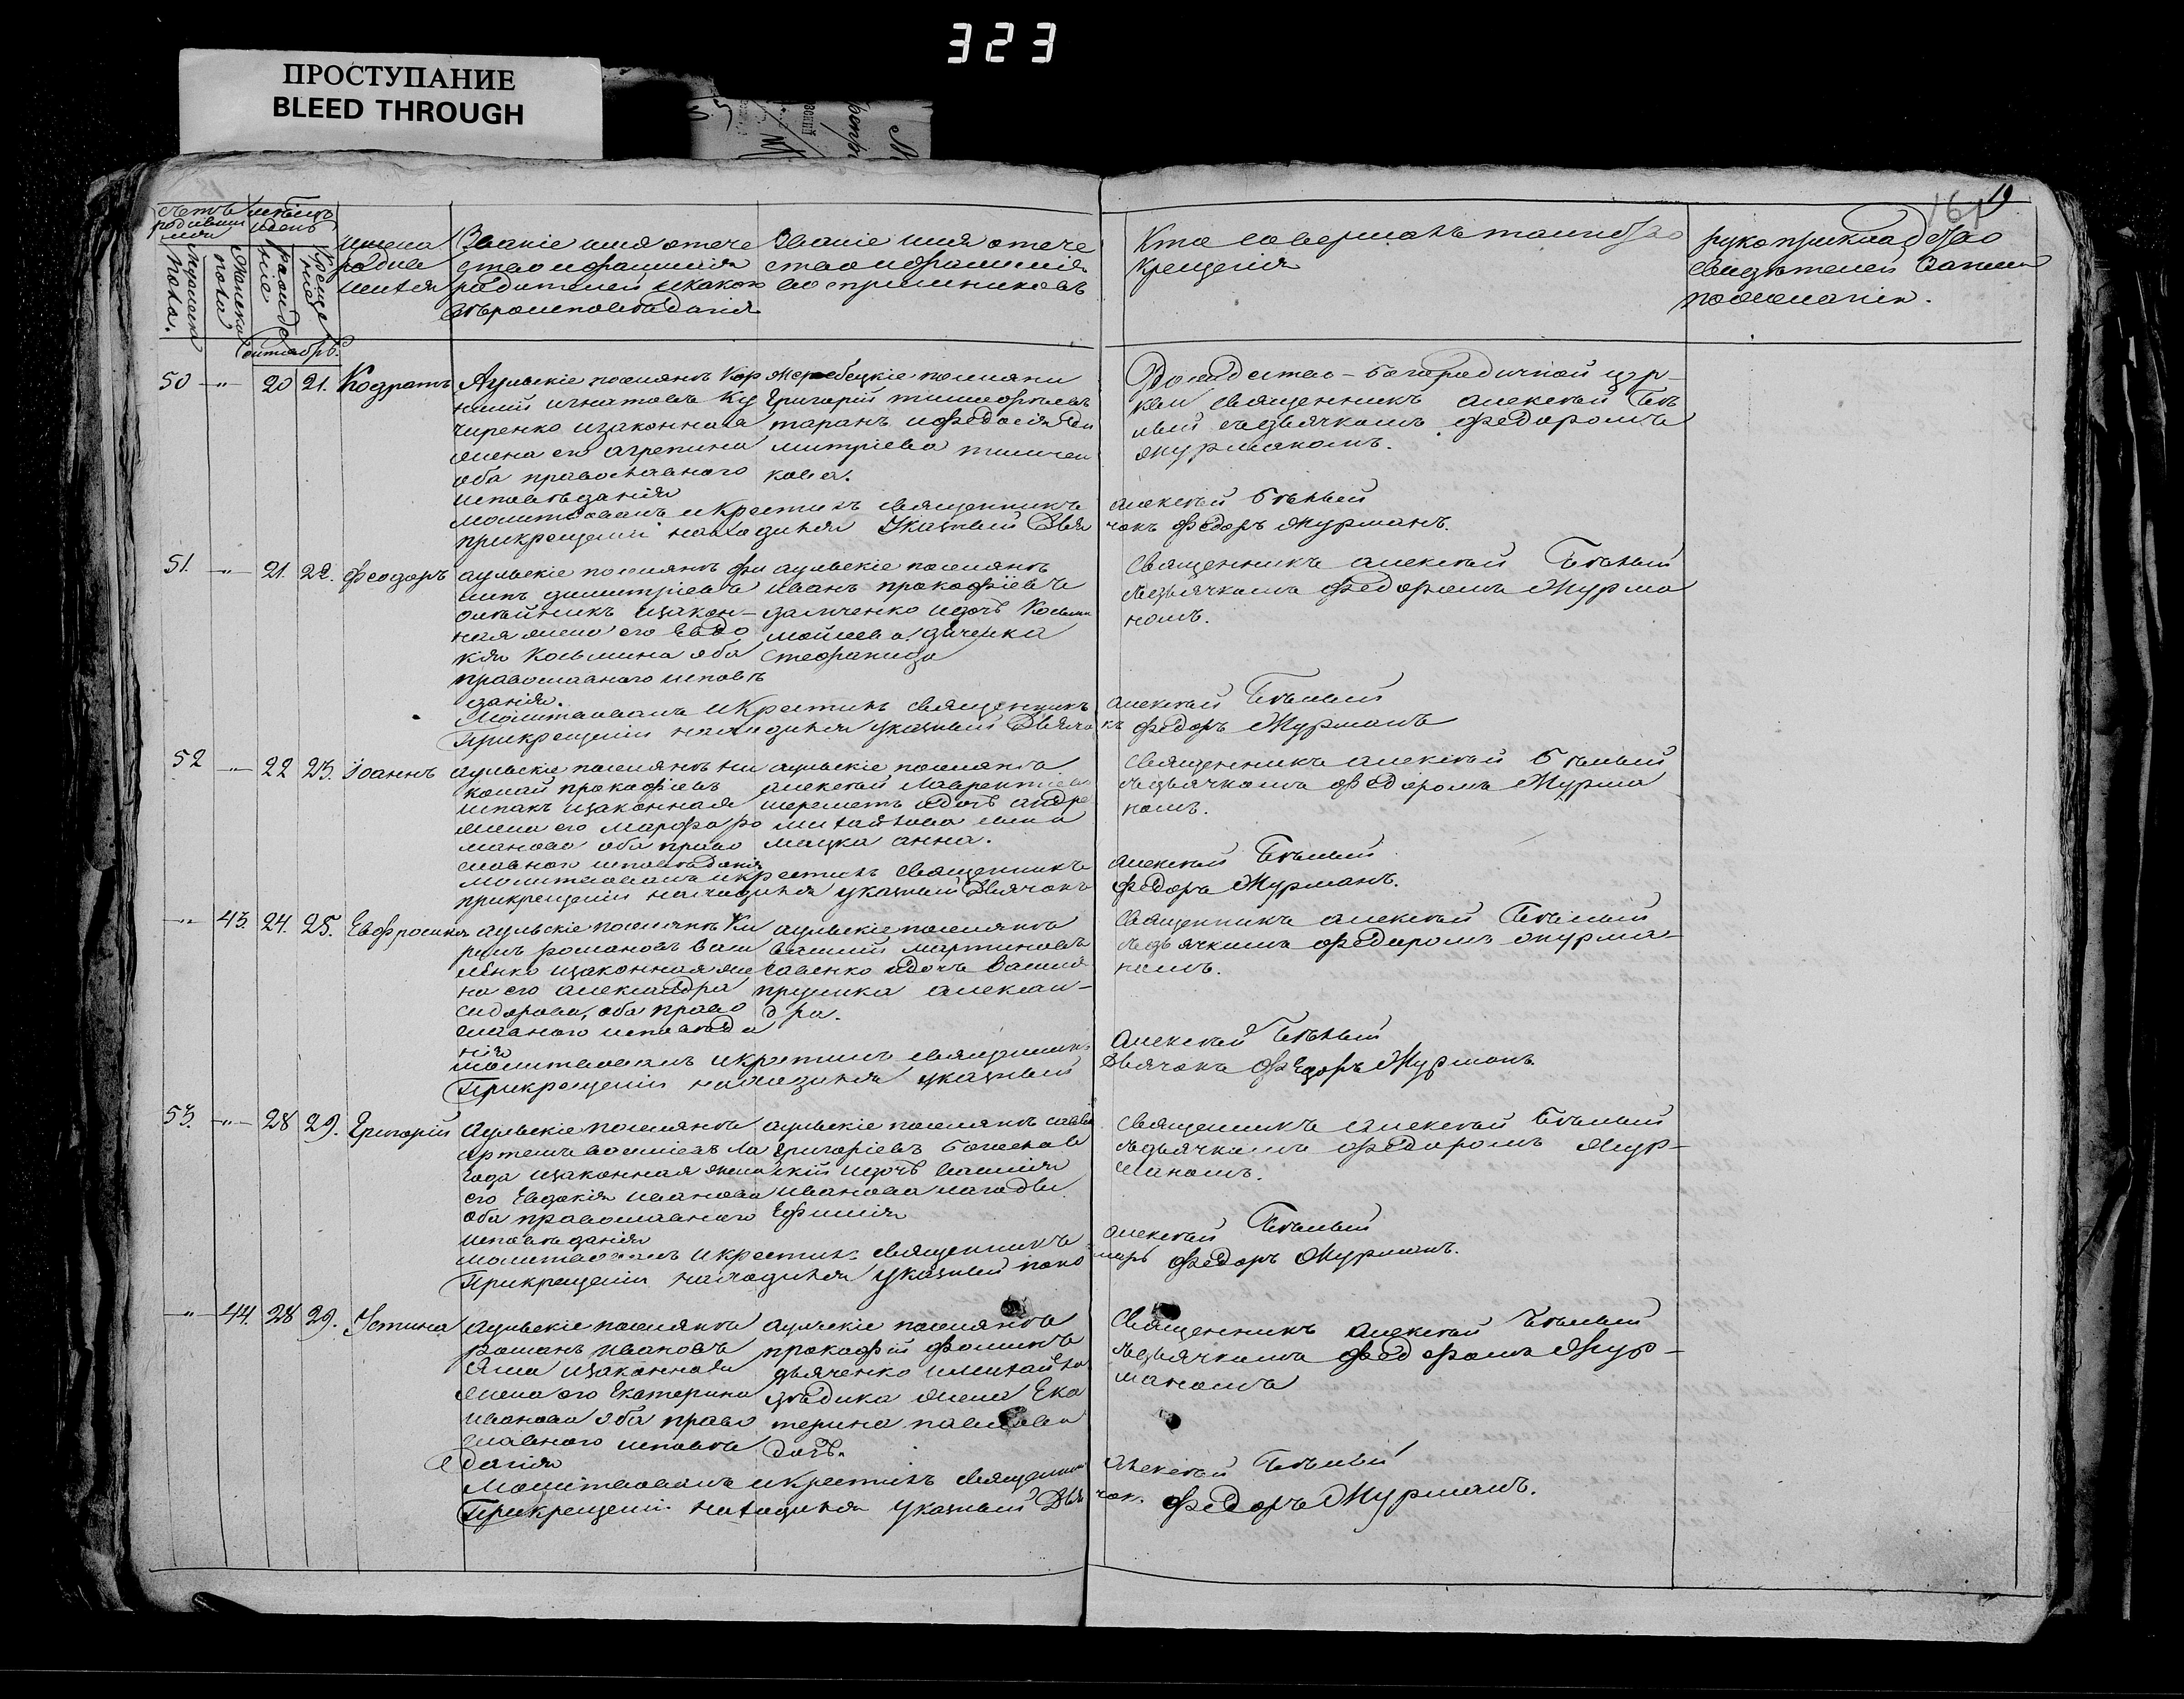 323
ПРОСТУПАНИЕ
BLEED THROUGH
19
161
Счетъ родившихся
Мужеска пола.
Женска пола
Мѣсяцъ и день
рожденіе
крещеніе
Имена родившихся
Званіе имя отече
ство и фамилія
родителей и какого
вѣроисповѣданія
Званіе имя отече
ство и фамилія
воспріемниковъ
Кто совершалъ таинство
крещенія
рукоприкладство
свидѣтелей записи
по желанію.
Октябрь.
50 -"- 20 21. Кодратъ
Аульскіе поселянѣ Кор
нилій Игнатовъ Ку
чиренко и законная
жена его Агрепина
оба православного
исповѣданія
Жеребецкіе поселяни
Григорій Тимофѣевъ
Таранъ и Федосія Ди
митріева
кова.
Рождество-Богородичной цер-
кви священникъ Алексѣй Бѣ
лый съ дьячкомъ Федоромъ
Журманомъ.
Молитвовалъ и крестилъ священникъ Алексѣй Бѣлый
При крещеніи находился указный Дьячокъ Федоръ Журманъ.
51. -"- 21. 22. Феодоръ
аульскіе поселянѣ Фи
липъ Димитріевъ
Олѣйникъ и закон-
ная жена его Евдо
кія Косьмина оба
православного исповѣ
данія.
аульскіе поселянѣ
Иванъ Прокофіевъ
Дьяченко и дочь Косьми
Мойсеева Дьченка
Стефанида
Священникъ Алексѣй Бѣлый
съ дьячкомъ Федоромъ Журма
номъ.
Молитвовалъ и крестилъ священникъ Алексѣй Бѣлый
При крещеніи находился указный Дьячокъ Федоръ Журманъ
52 -"- 22 23. Іоаннъ
аульскіе поселянѣ Ни
колай Прокофіевъ
Шпакъ и законная
жена его Марфа Ро
манова оба право
славного исповѣданія
аульскіе поселянѣ
Алексѣй Лаврентіевъ
Шереметъ и дочь Андре
Анна.
Священникъ Алексѣй Бѣлый
съ дьячкомъ Федоромъ Журма
номъ.
Молитвовалъ и крестилъ священникъ Алексѣй Бѣлый
При крещеніи находился указный Дьячокъ Федоръ Журманъ.
-"- 43. 24. 25. Евфросинія
аульскіе поселянѣ Ки
рилъ Романовъ Васи
ленко и законная же
на его Александра
Сидорова, оба право
славного исповѣда
нія
аульскіе поселянѣ
Василій Мартиновъ
Савенко и дочь Василія
Александра.
Священникъ Алексѣй Бѣлый
съ дьячкомъ Федоромъ Журма-
номъ.
Молитвовалъ и крестилъ священникъ Алексѣй Бѣлый
При крещеніи находился указный Дьячокъ Федоръ Журманъ.
53. -"- 28 29. Григорій
Аульскіе поселянѣ
Артемъ Василіевъ Ла
года и законная жена
его Евдокія Иванова
оба православного
исповѣданія
аульскіе поселянѣ Савва
Григоріевъ
и дочь Василія
Иванова Лагоды
Ефимія
Священникъ Алексѣй Бѣлый
съ дьячкомъ Федоромъ Жур-
маномъ.
Молитвовалъ и крестилъ священникъ Алексѣй Бѣлый
При крещеніи находился указный понамарь Федоръ Журманъ.
-"- 44. 28 29. Устинія
аульскіе поселянѣ
Романъ Ивановъ
Яша и законная
жена его Екатерина
Иванова оба право
славного исповѣ
данія
аульскіе поселянѣ
Прокофій Фоминъ
Дьяченко и Михайла
жена Ека
терина Павлова
дочь.
Священникъ Алексѣй Бѣлый
съ дьячкомъ Федоромъ Жур-
маномъ
Молитвовалъ и крестилъ священникъ Алексѣй Бѣлый
При крещеніи находился указный Дьячокъ Федоръ Журманъ.